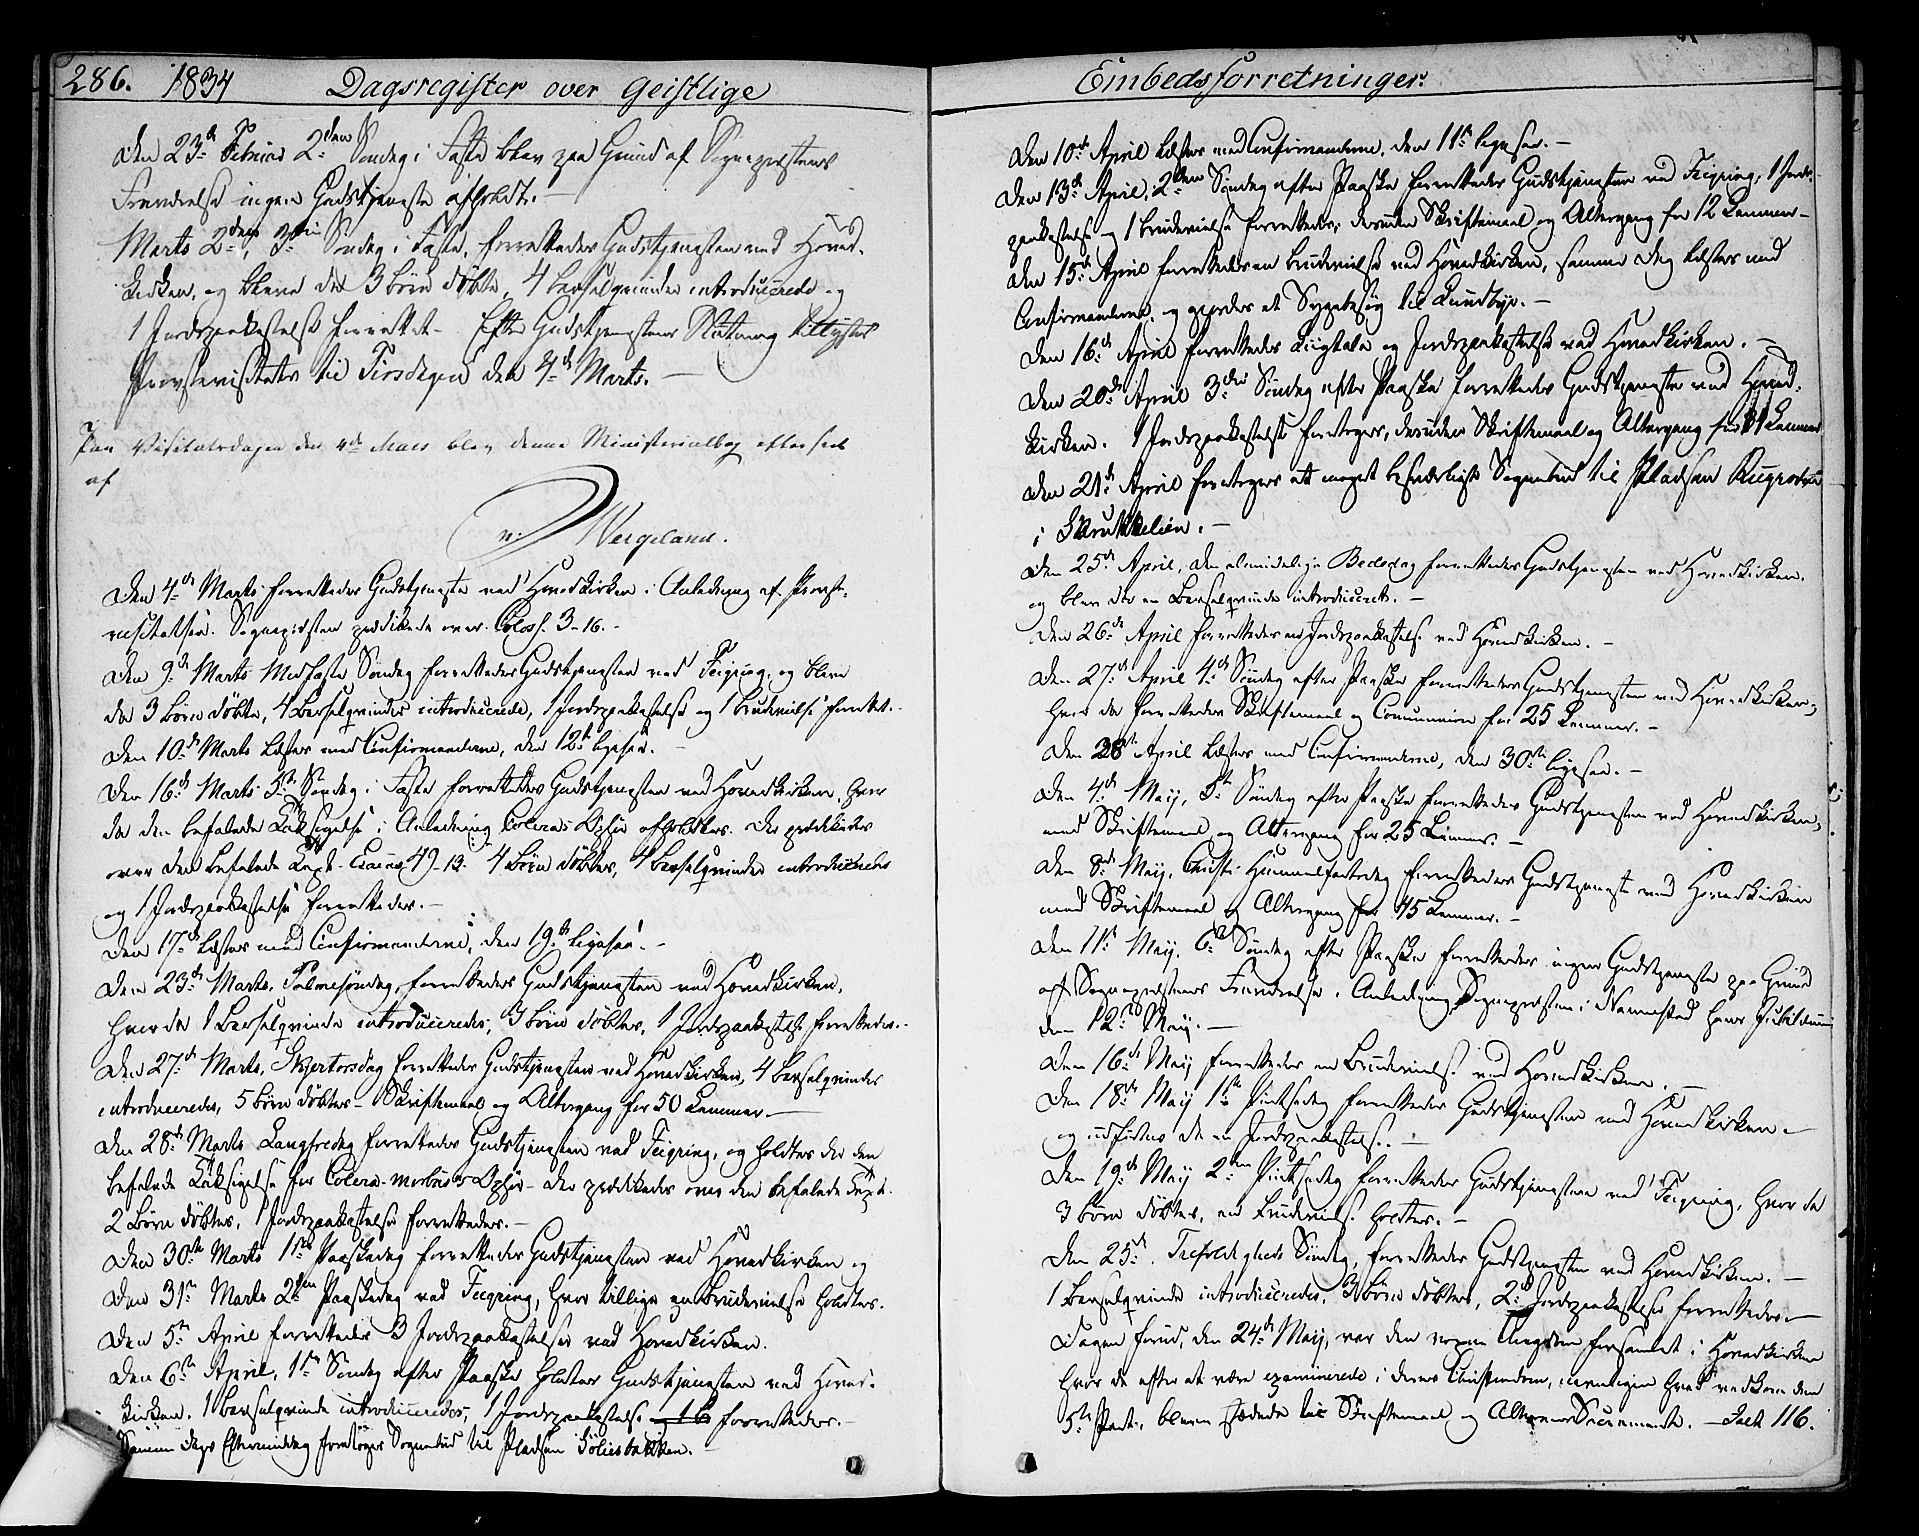 286. 1834 Dagsregister over Geistlige
Den 23de Februar 2den Søndag i Faste blev paa Grund af Sognepræstens
Fraværelse ingen Gudstjeneste afholdt. –
Marts 2den, 3die Søndag i Faste, forrettedes Gudstjenesten ved Hoved-
kirken, og bleve der 3 Børn døbte, 4 Barselqvinder introducerede og
1 Jordpaakastelse forrettet – Efter Gudstjenestens Slutning tillystes
Provstevisitats til Tirsdagen den 4de Marts. –
Paa Visitatsdagen den 4de Mars blev denne Ministerialbog efterseet
af
N: Wergeland.
Den 4de Marts forrettedes Gudstjeneste ved Hovedkirken i Anledning af Provste-
visitatsen. Sognepræsten prædikede over Coloss. 3-16. –
Den 9de Marts Midfaste Søndag forrettedes Gudstjenesten ved Feiring, og bleve
da 3 Børn døbte, 4 Barselqvinder introducerede, 1 Jordpaakastelse og 1 Brudevielse forrettet. –
Den 10de Marts læstes med Confirmanderne, den 12te ligesaa. –
Den 16de Marts 5te Søndag i Faste forrettedes Gudstjenesten ved Hovedkirken, hvor
da den befalede Taksigelse i Anledning Coleras Ophør afholdtes. Der prædikedes
over den befalede Text – Esaias 49-13. 4 Børn døbtes, 4 Barselqvinder introduceredes
og 1 Jordpaakastelse forrettedes. –
Den 17de læstes med Confirmanderne, den 19de ligesaa. –
Den 23de Marts, Palmesøndag forrettedes Gudstjenesten ved Hovedkirken,
hvor da 1 Barselqvinde introduceredes, 3 Børn døbtes, 1 Jordpaakastelse forrettedes. –
Den 27de Marts, Skjertorsdag forrettedes Gudstjenesten ved Hovedkirken, 4 Barselqvinder
introduceredes, 5 Børn døbtes – Skriftemaal og Altergang for 50 Lemmer. –
Den 28de Marts Langfredag forrettedes Gudstjenesten ved Feiring, og holdtes der den
befalede Taksigelse for Colera-morbus's Ophør – der prædikedes over den befalede Text.
2 Børn døbtes, 1 Jordpaakastelse forrettedes. –
Den 30te Marts 1ste Paaskedag forrettedes Gudstjenesten ved Hovedkirken og
Den 31te Marts 2den Paaskedag ved Feiring, hvor tillige en Brudevielse holdtes.
Den 5te April forrettedes 3 Jordpaakastelser ved Hovedkirken.
Den 6te April, 1ste Søndag efter Paaske holdtes Gudstjenesten ved Hoved-
kirken. 1 Barselqvinde introduceredes, 1 Jordpaakastelse forrettedes. –
Samme Dags Eftermiddag foretoges Sognebud til Pladsen
Embedsforretninger.
Den 10de April læstes med Confirmanderne, den 11te ligesaa. –
Den 13de April, 2den Søndag efter Paaske forrettedes Gudstjenesten ved Feiring, 1 Jord-
paakastelse og 1 Brudevielse forrettedes, desuden Skriftemaal og Altergang for 12 Lemmer –
Den 15de April forrettedes en Brudevielse ved Hovedkirken, samme Dag læstes med
Confirmanderne, og gjordes et Sygebesøg til Lundbye. –
Den 16de April forrettedes Liigtale og Jordpaakastelse ved Hovedkirken. –
Den 20de April 3die Søndag efter Paaske forrettedes Gudstjeneste ved Hoved-
kirken. 1 Jordpaakastelse foretoges, desuden Skriftemaal og Altergang for Lemmer
Den 21de April foretoges et meget besværligt Sognebud til Pladsen
i Skrukkelien. –
Den 25de April, den almindelige Bededag forrettedes Gudstjenesten ved Hovedkirken,
og blev der en Barselqvinde introduceret. –
Den 26de April forrettedes en Jordpaakastelse ved Hovedkirken. –
Den 27de April 4de Søndag efter Paaske forrettedes Gudstjenesten ved Hovedkirken,
hvor da forrettedes Skriftemaal og Communion for 25 Lemmer. –
Den 28de April læstes med Confirmanderne, den 30te ligesaa. –
Den 4de Maij, 5te Søndag efter Paaske forrettedes Gudstjenesten ved Hovedkirken,
med Skriftemaal og Altergang for 25 Lemmer. –
Den 8de Maij, Christi Himmelfartsdag forrettedes Gudstjeneste ved Hovedkirken
med Skriftemaal og Altergang for 45 Lemmer. –
Den 11te Maij, 6te Søndag efter Paaske forrettedes ingen Gudstjeneste paa Grund
af Sognepræstens Fraværelse i Anledning Sognepræsten i Nannestad havde Jubilæum
den 12te Maij. –
Den 16de Maij forrettedes en Brudevielse ved Hovedkirken. –
Den 18de Maij 1ste Pintsedag forrettedes Gudstjenesten ved Hovedkirken –
og udførtes der en Jordpaakastelse. –
Den 19de Maij 2den Pintsedag forrettedes Gudstjenesten ved Feiring, hvor da
3 Børn døbtes, en Brudevielse holdtes. –
Den 25de Trefoldigheds Søndag, forrettedes Gudstjenesten ved Hovedkirken. –
1 Barselqvinde introduceredes, 3 Børn døbtes, 2 Jordpaakastelser forrettedes –
Dagen forud, den 24de Maij, var den voxne Ungdom forsamlet i Hovedkirken
hvor de efter at være examinerede i deres Christendom, nemligen hvad vedkom den
5te Part, bleve stædede til Skriftemaal og Alterens Sacramente. – Ialt 116.